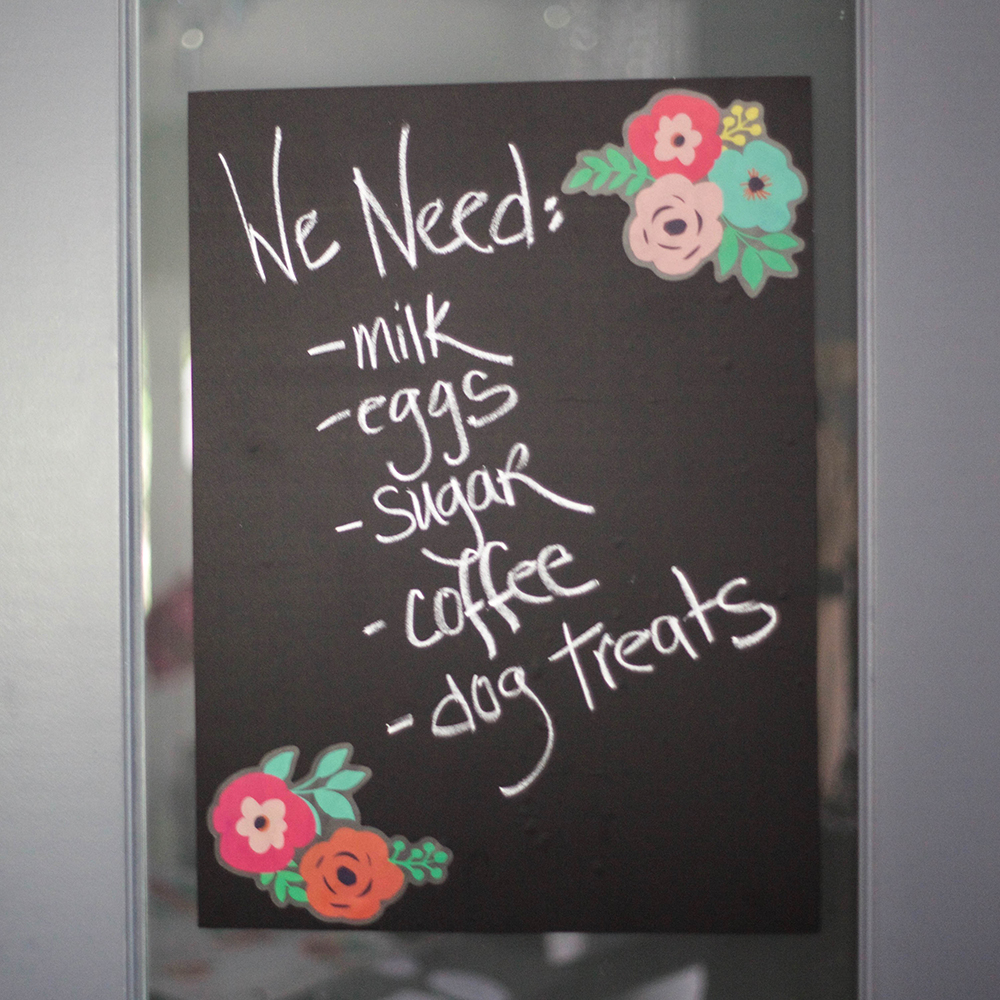 We Need:
-milk
-eggs
-sugar
-coffee
-dog treats